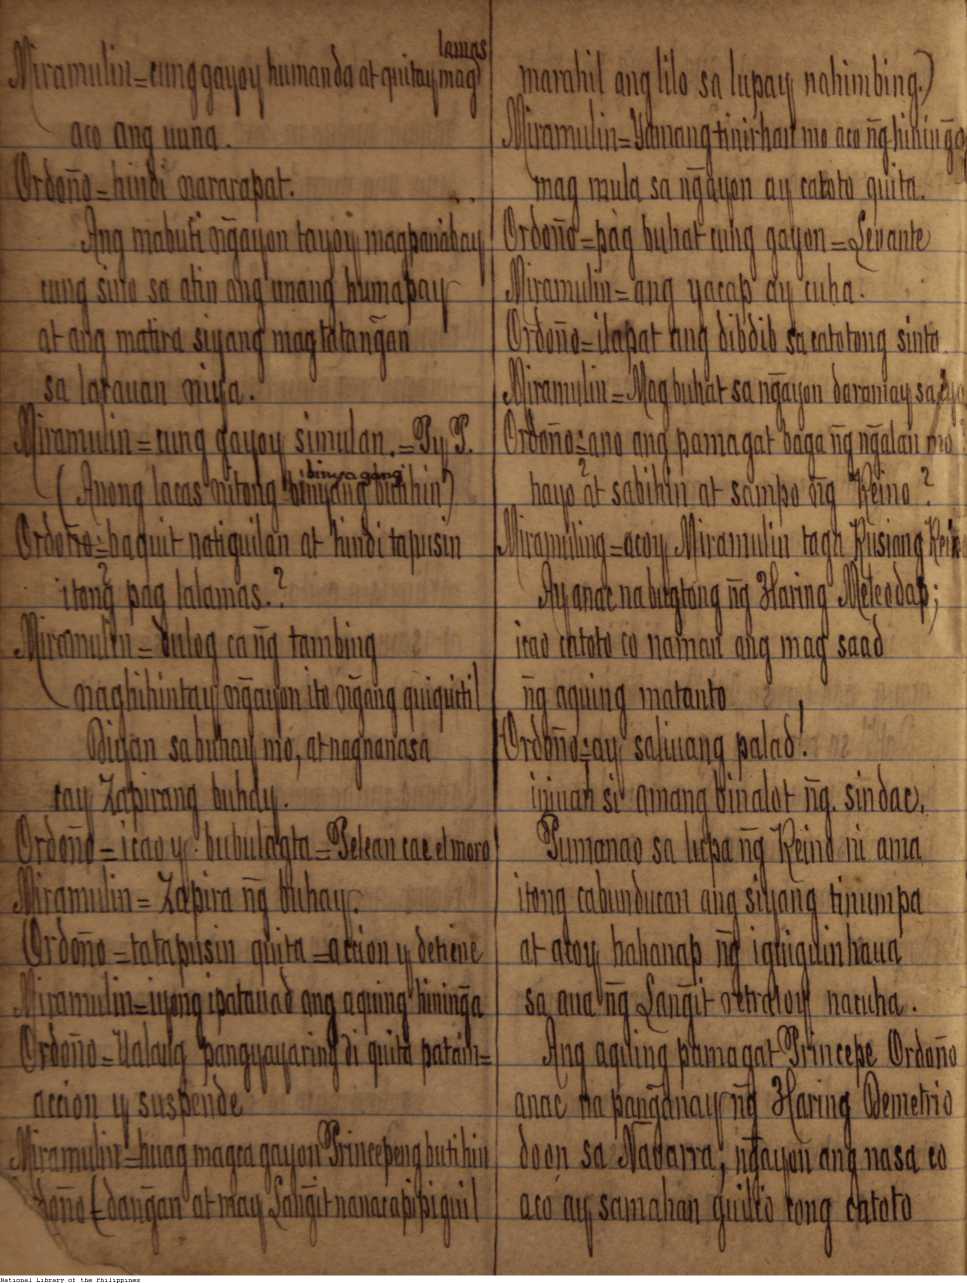 lamas
Miramulin = cung gayoy humanda at quitay mag
aco ang uuna.
Ordoño = hindi nararapat.
Ang mabuti ñgayon tayoy magpanabay
cung sino sa atin ang unang humapay
at ang matira siyang magtatañgan
sa larauan niya.
Miramulin = cung gayoy simulan. = Py P.
binyagang
(Anong lacas nitong butihin)
Ordoño = baquit natiguilan at hindi tapusin
itong pag lalamas.?
Miramulin = dulog ca ñg tambing
naghihintay ñgayon ito ñgang quiquitil
Bigan sa buhay mo, at nagnanasa
cay Zapirang buhay.
Ordoño = icao y bubulagta = Pelean cae el moro
Miramulin = Zapira ñg buhay.
Ordoño = tatapusin quita = accion y detiene
Miramulin = iyong ipatauad ang aquing hininğa
Ordoño = Ualang pangyayaring di quita patain =
accion y suspende
Miramulin = huag magca gayon Princepeng butihin
Ordoño (dañgan at may Lañgit nanacapipiguil
marahil ang lilo sa lupay nahimbing.)
Miramulin = Yamang tinirhan mo aco ñg hininğa
mag mula sa ñgayon ay catoto quita.
Ordoño = pag buhat cung gayon = Levante
Miramulin = ang yacap ay cuha.
Ordoño = ilapat ang dibdib sa catotong sinta
Miramulin = Mag buhat sa ñgayon daramay sa
Ordoño = ano ang pamagat baga ñg ñgalan mo
hayo at sabihin at sampo ñg Reino?
Miramuling = acoy Miramulin taga Rusiang Reino
Ay anac na bugtong ñg Haring Meteodap;
icao catoto co naman ang mag saad
ñg aquing matanto
Ordoño = ay saliuang palad!
iniuan si amang binalot ñg sindac,
Pumanao sa lupa ñg Reino ni ama
itong cabunducan ang siyang tinumpa
at acoy hahanap ñg iguiguinhaua
sa aua ñg Lañgit retratoy nacuha.
Ang aquing pamagat Princepe Ordoño
anac na pañganay ñg Haring Demetrio
doon sa Navarra; ñgayon ang nasa co
aco ay samahan guilio cong catoto